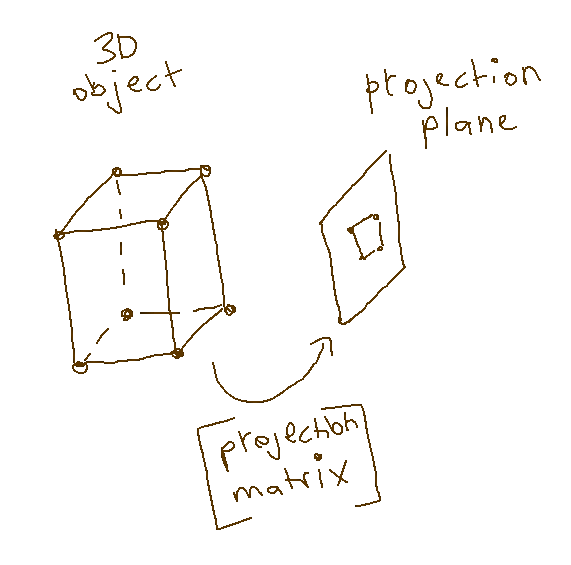 3D
object
projection
plane
projection
matrix